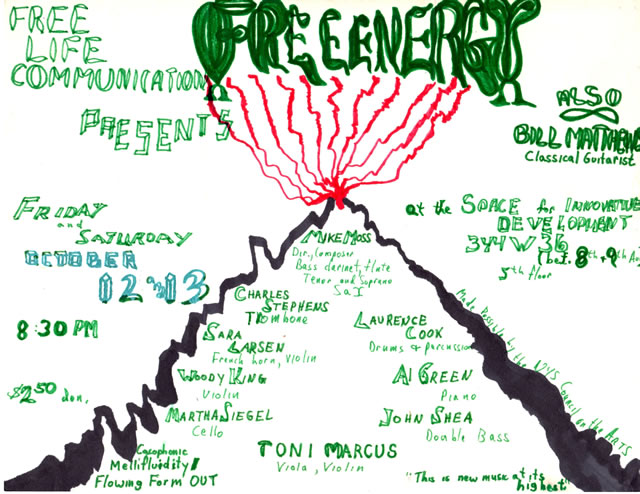 FREE
LIFE
COMMUNICATION
PRESENTS
FREE ENERGY
ALSO
BILL MATTHEWS
Classical Guitarist
FRIDAY
and
SATURDAY
OCTOBER
12 & 13
8:30 PM
$2.50 don.
at the SPACE for INNOVATIVE
DEVELOPMENT
344 W 36
(bet. 8th + 9th Av
5th floor
MIKE MOSS
Dir., Composer
Bass clarinet, flute
Tenor and Soprano
Sax
CHARLES
STEPHENS
Trombone
SARA
LARSEN
French horn, violin
WOODY KING
Violin
MARTHA SIEGEL
Cello
LAURENCE
COOK
Drums & percussion
Al GREEN
Piano
JOHN SHEA
Double Bass
TONI MARCUS
Viola, Violin
Made Possible by the NYS Council on the ARTS
Cacophonic
Mellifluidity!
Flowing Form OUT
"This is new music at its
highest"